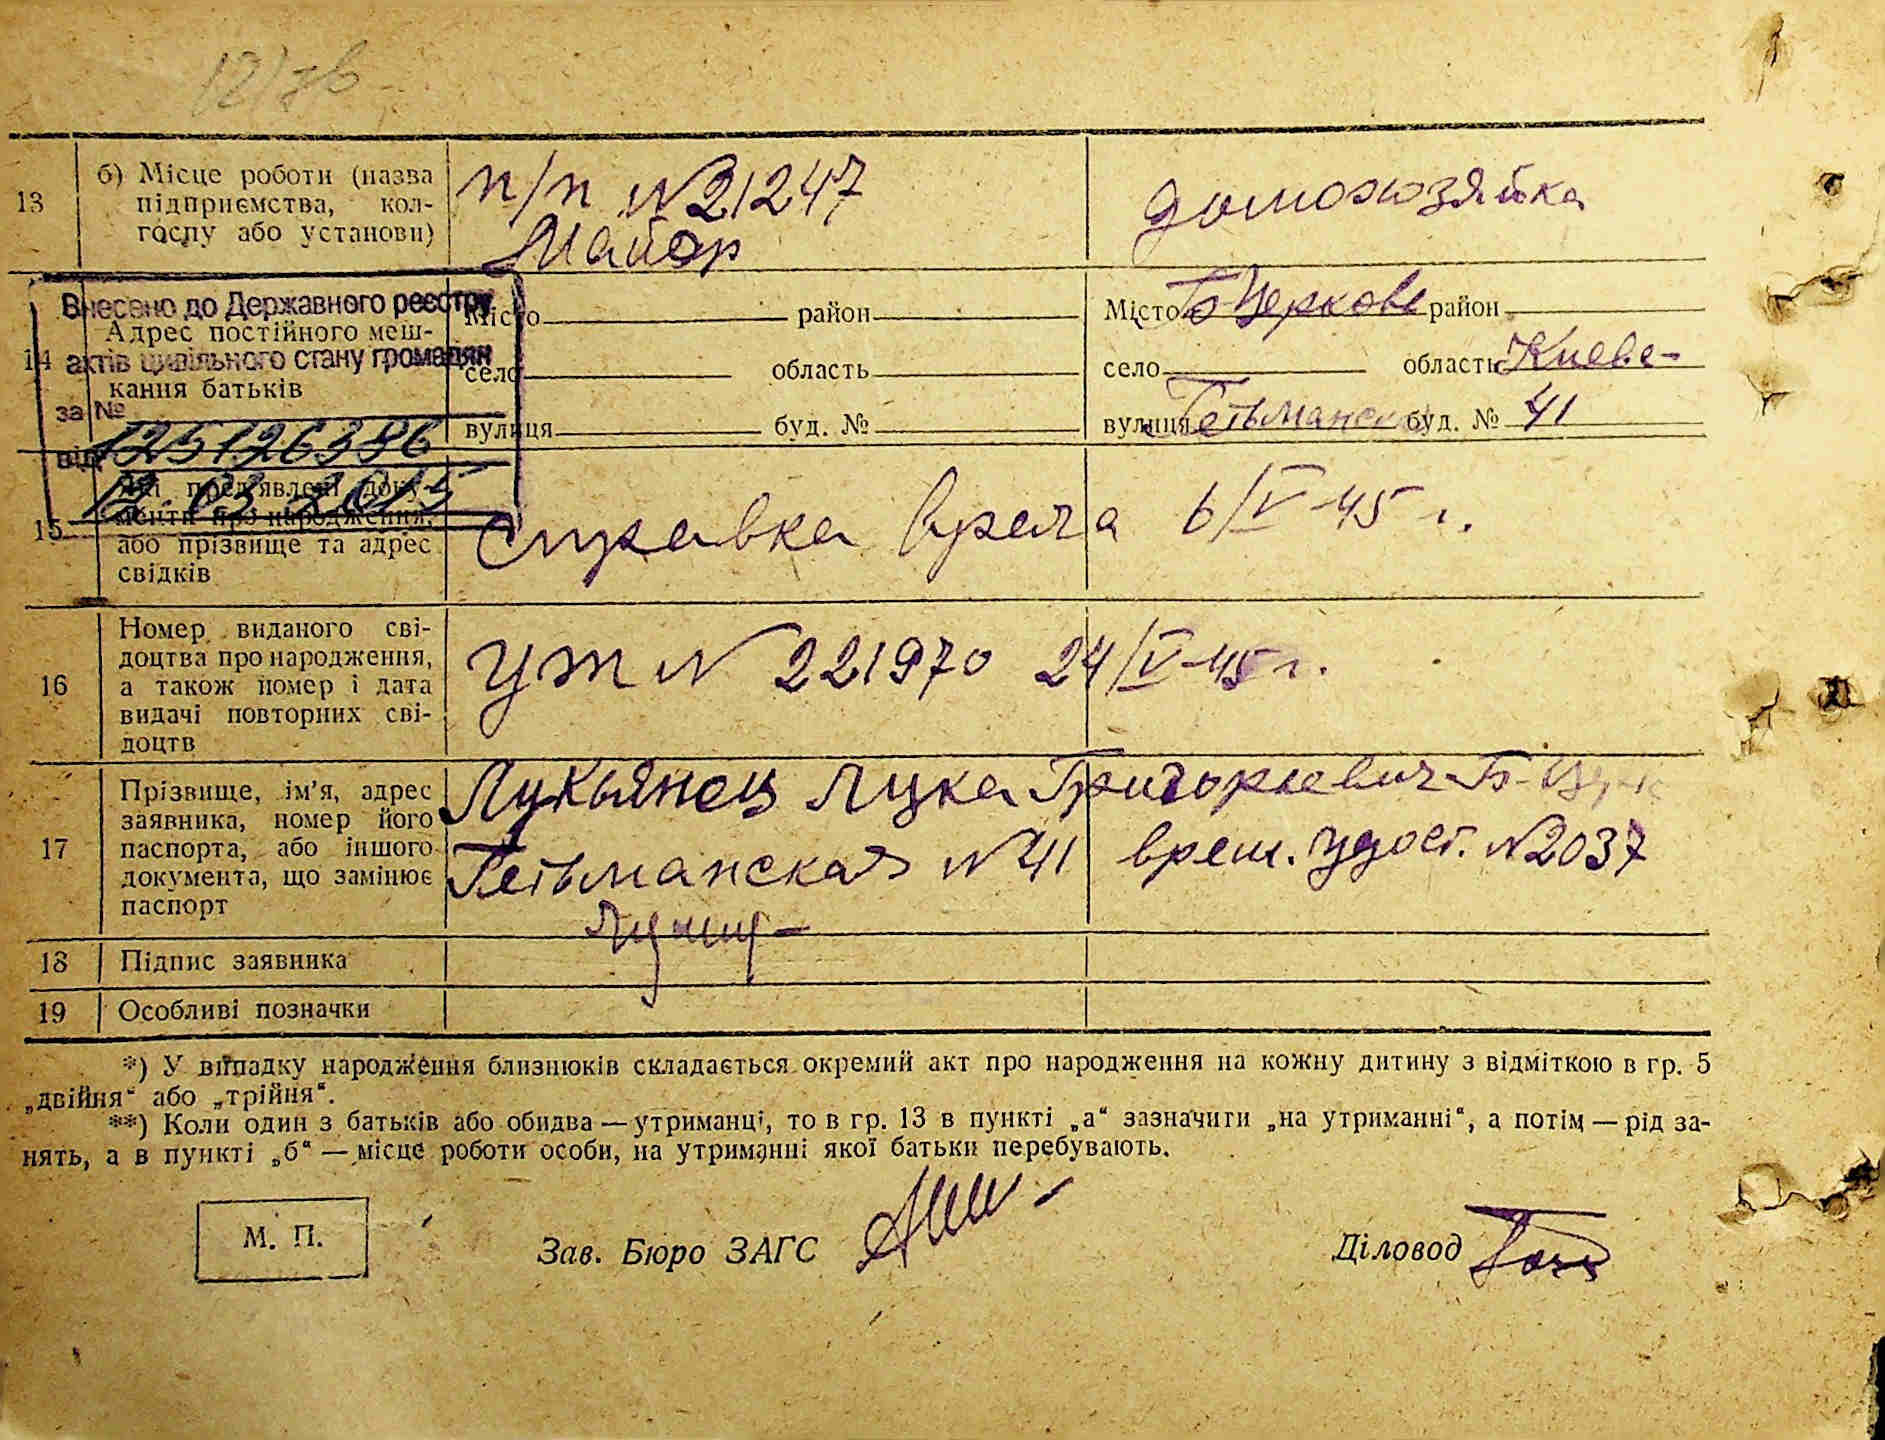 13 б) Місце роботи (назва підприємства, кол-госпу або установи)
п/п №21247
Майор
домохозяйка
Внесено до Державного реєстру
актів цивільного стану громадян
за №
125126386
від
12.03.2015
14 Адрес постійного меш-
кання батьків
Місто район
село область
вулиця буд. №
Місто Б-Церковь район
село область Киевс-
вулиця Гетьманск буд. № 41
15 Які пред'явлені доку-
менти про народження,
або прізвище та адрес
свідків
Справка врача 6/V-45 г.
16 Номер виданого сві-
доцтва про народження,
а також номер і дата
видачі повторних сві-
доцтв
УЖ № 221970 24/V-45 г.
17 Прізвище, ім'я, адрес
заявника, номер його
паспорта, або іншого
документа, що замінює
паспорт
Лукьянец Лука Григорьевич Б-Церк
Гетьманская №41 врем. удост. №2037
18 Підпис заявника
19 Особливі позначки
*) У випадку народження близнюків складається окремий акт про народження на кожну дитину з відміткою в гр. 5
„двійня“ або „трійня“.
**) Коли один з батьків або обидва — утриманці, то в гр. 13 в пункті „а“ зазначити „на утриманні“, а потім — рід за-
нять, а в пункті „б“ — місце роботи особи, на утриманні якої батьки перебувають.
М. П.
Зав. Бюро ЗАГС
Діловод